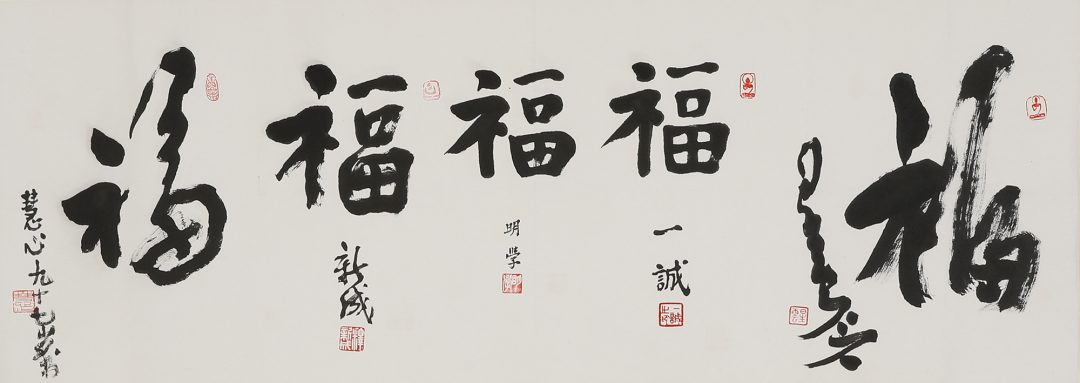 福
福
一誠
福
明學
福
新成
福
慧心九十七